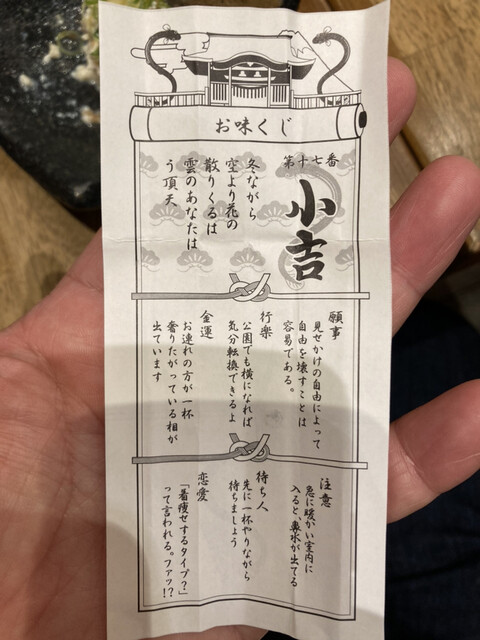 お味くじ
第十七番
小吉
冬ながら
空より花の
散りくるは
雲のあなたは
う頂天
願事
見せかけの自由によって
自由を壊すことは
容易である。
行楽
公園でも横になれば
気分転換できるよ
金運
お連れの方が一杯
奢りたがっている相が
出ています
注意
急に暖かい室内に
入ると、鼻水が出てる
待ち人
先に一杯やりながら
待ちましょう
恋愛
「着痩せするタイプ？」
って言われる。ファッ!?